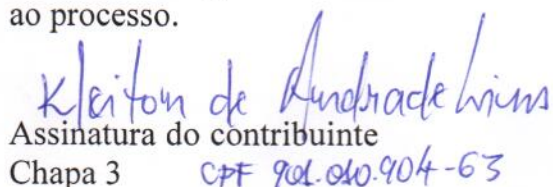 ao processo.
Kleiton de Andrade
Assinatura do contribuinte
Chapa 3 CPF 901.010.904-63